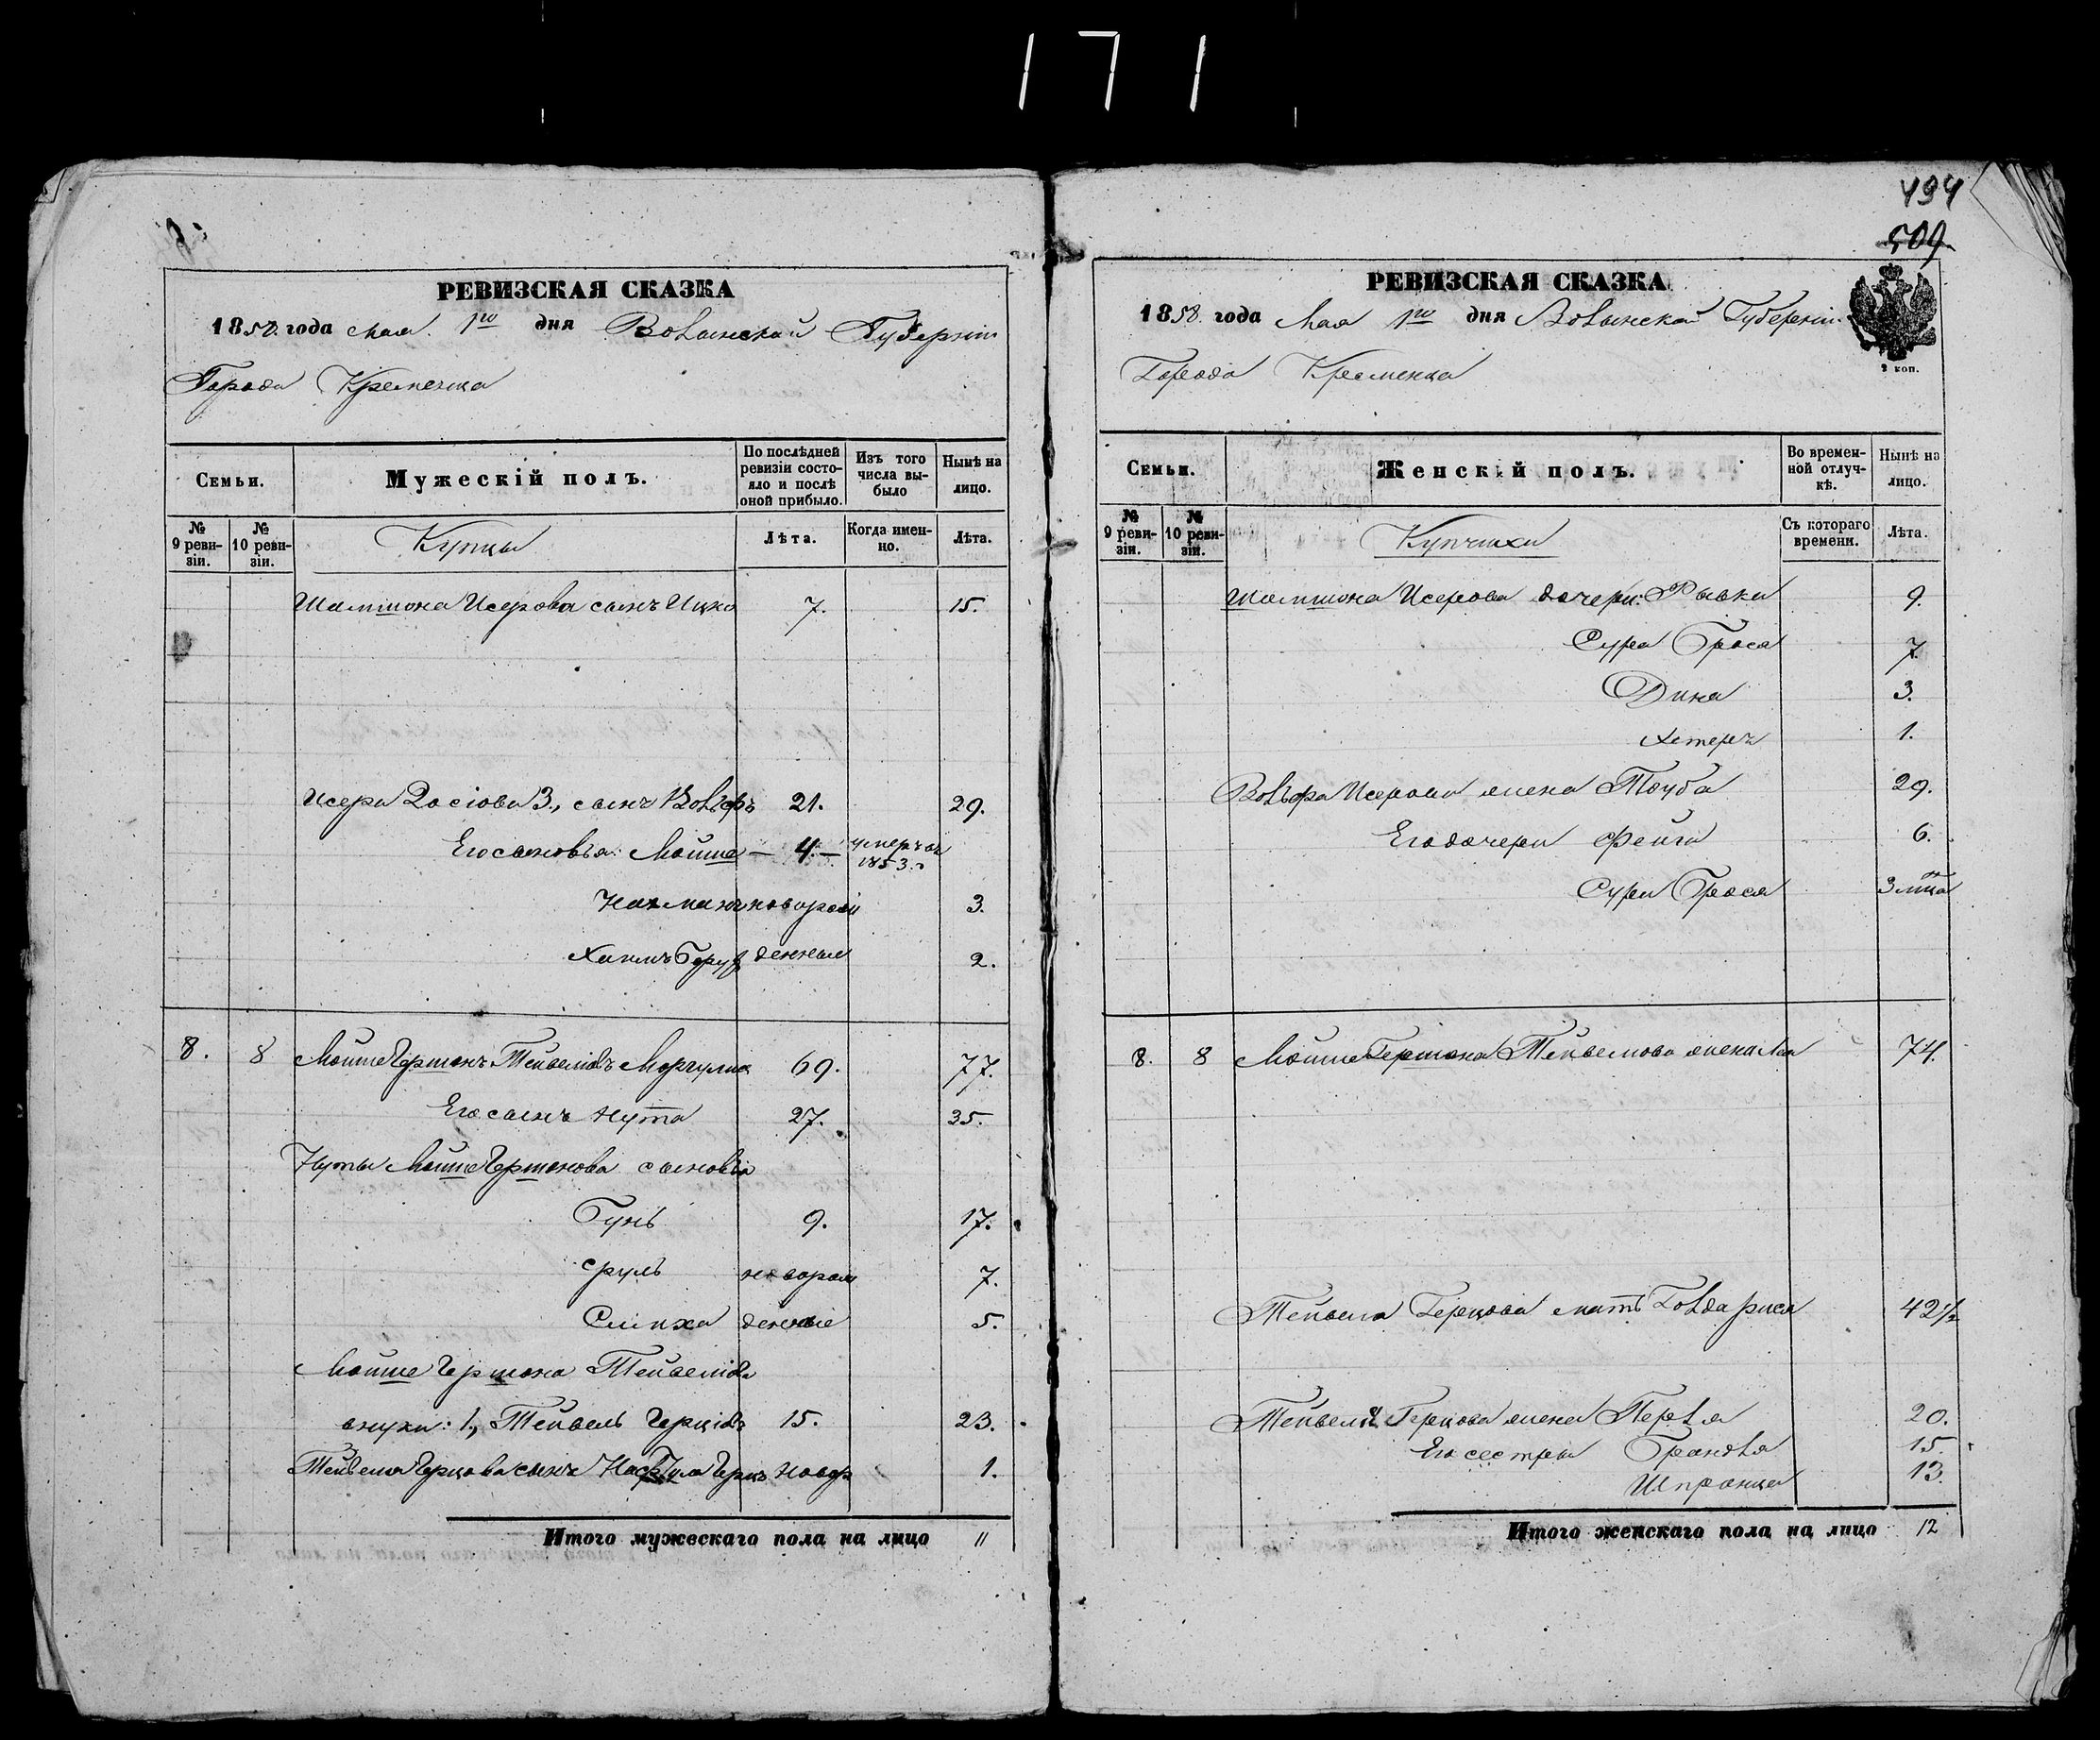 171
РЕВИЗСКАЯ СКАЗКА
1858. года Мая. 1го дня Волынской Губерніи
Города Кременца
Семьи.
Мужескій полъ.
По послѣдней ревизіи состояло и послѣ оной прибыло.
Изъ того числа выбыло
Нынѣ на лицо.
№ 9 ревизіи.
№ 10 ревизіи.
Купцы
Лѣта.
Когда именно.
Лѣта.
Шамшона Исерова сынъ Ицко 7. 15.
Исера Іосіова 3., сынъ Вольфъ 21. 29.
Его сыновья: Мойше — 4. — умеръ въ 1853.
Нахманъ новорож 3.
Хаимъ Борух денные 2.
8. 8 Мойше Гершонъ Тейвеліовъ Моргулис 69. 77.
Его сынъ Нута 27. 35.
Нуты Мойше Гершонова сыновья
Гунь 9. 17.
Сруль новорож 7.
Симха денные 5.
Мойше Гершона Тейвеліова
внуки: 1., Тейвель Герціовъ 15. 23.
Тейвеля Герцова сынъ Нафтула Герцъ новор 1.
Итого мужескаго пола на лицо 11
494
509.
РЕВИЗСКАЯ СКАЗКА
1858. года Мая 1го дня Волынской Губерніи.
2 коп.
Города Кременца
Семьи.
Женскій полъ.
Во временной отлучкѣ.
Нынѣ на лицо.
№ 9 ревизіи.
№ 10 ревизіи.
Купчихи
Съ котораго времени.
Лѣта.
Шамшона Исерова дочери: Рывка 9.
Сура Брося 7.
Дина 3.
Хетеръ 1.
Вольфа Исерова жена Тоуба 29.
Его дочери Фейга 6.
Сура Брося 3 мца
8. 8 Мойше Гершона Тейвелиова жена Лея 74.
Тейвеля Герцова мать Голда Рися 42 1/2
Тейвеля Герцова жена Перля 20.
Его сестры Брандля 15.
Шпринца 13.
Итого женскаго пола на лицо 12